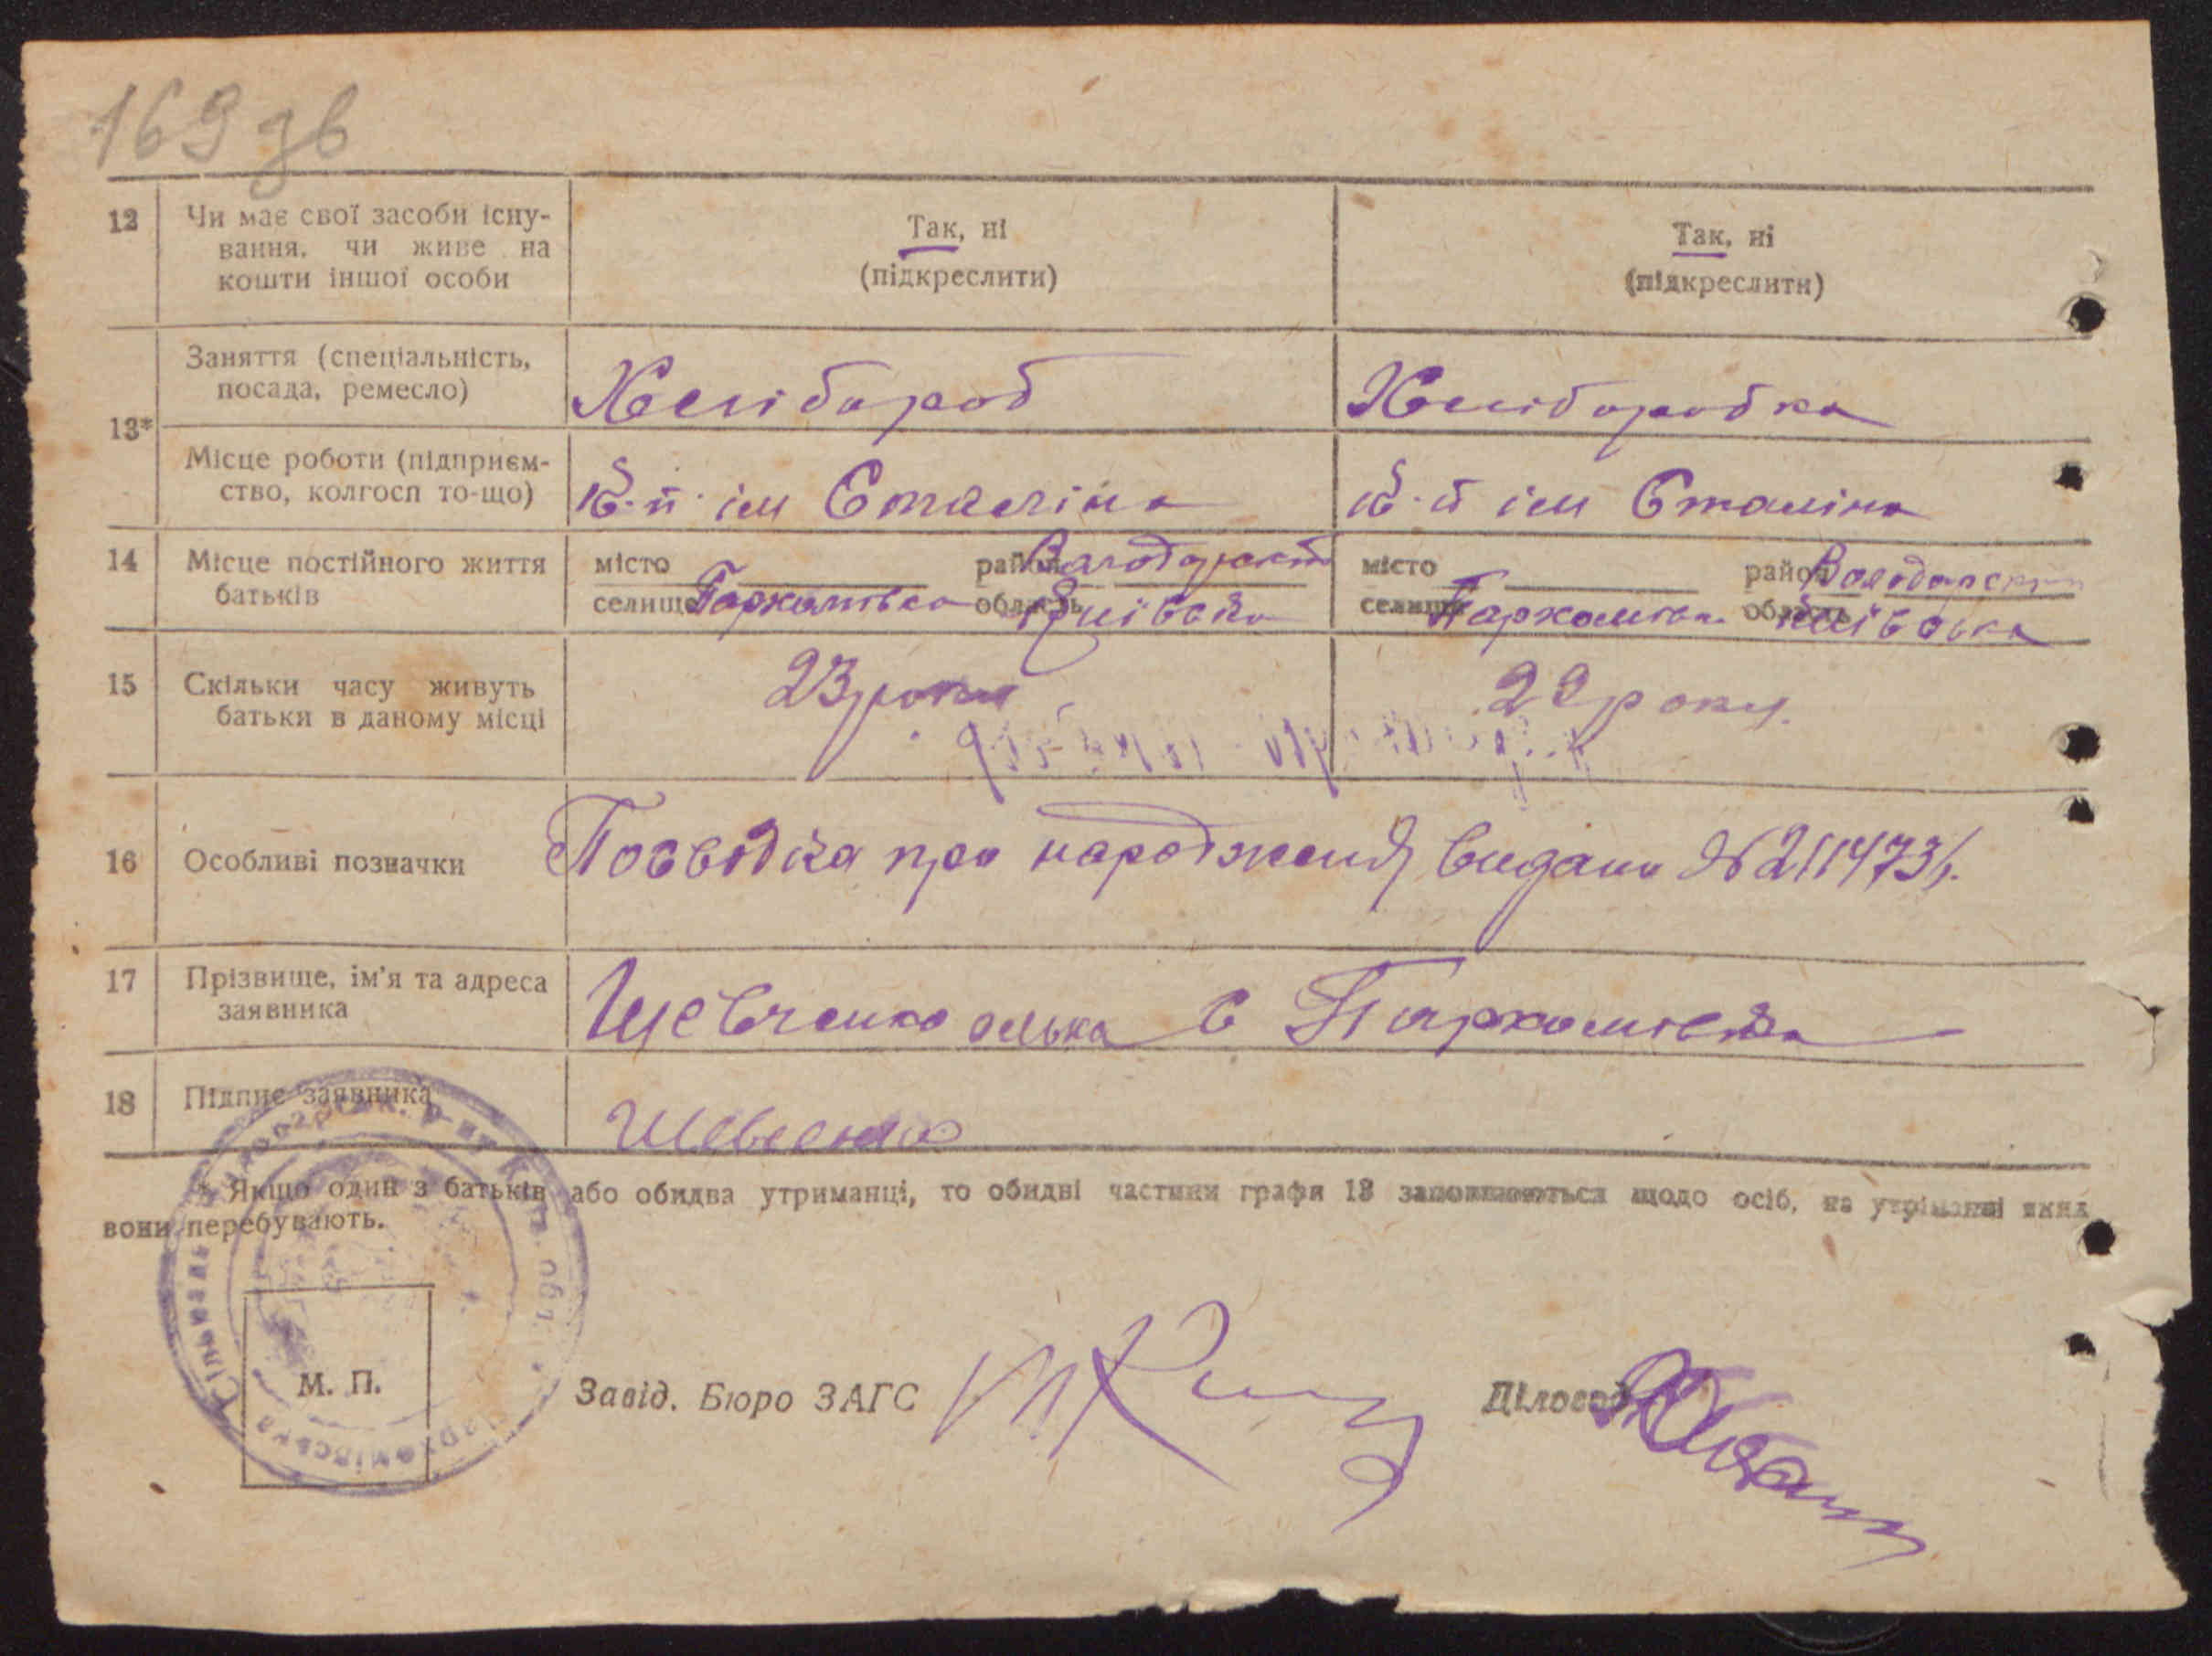 169 зв
12 Чи має свої засоби існу-
вання, чи живе на
кошти іншої особи
Так, ні
(підкреслити)
Так, ні
(підкреслити)
13*
Заняття (спеціальність,
посада, ремесло)
Хлібороб
Хліборобка
Місце роботи (підприєм-
ство, колгосп то-що)
ім Сталіна
ім Сталіна
14 Місце постійного життя
батьків
місто район Володарськ
селище Пархомівка область Київська
місто район Володарськ
селище Пархомівка область Київська
15 Скільки часу живуть
батьки в даному місці
23 роки
22 роки.
16 Особливі позначки
Посвідка про народження видана № 211473
17 Прізвище, ім'я та адреса
заявника
Шевченко олька с Пархомівка
18 Підпис заявника
Шевченко
* Якщо один з батьків або обидва утриманці, то обидві частини графи 13 заповнюються щодо осіб, на утриманні яких
вони перебувають.
М. П.
Завід. Бюро ЗАГС
Діловод